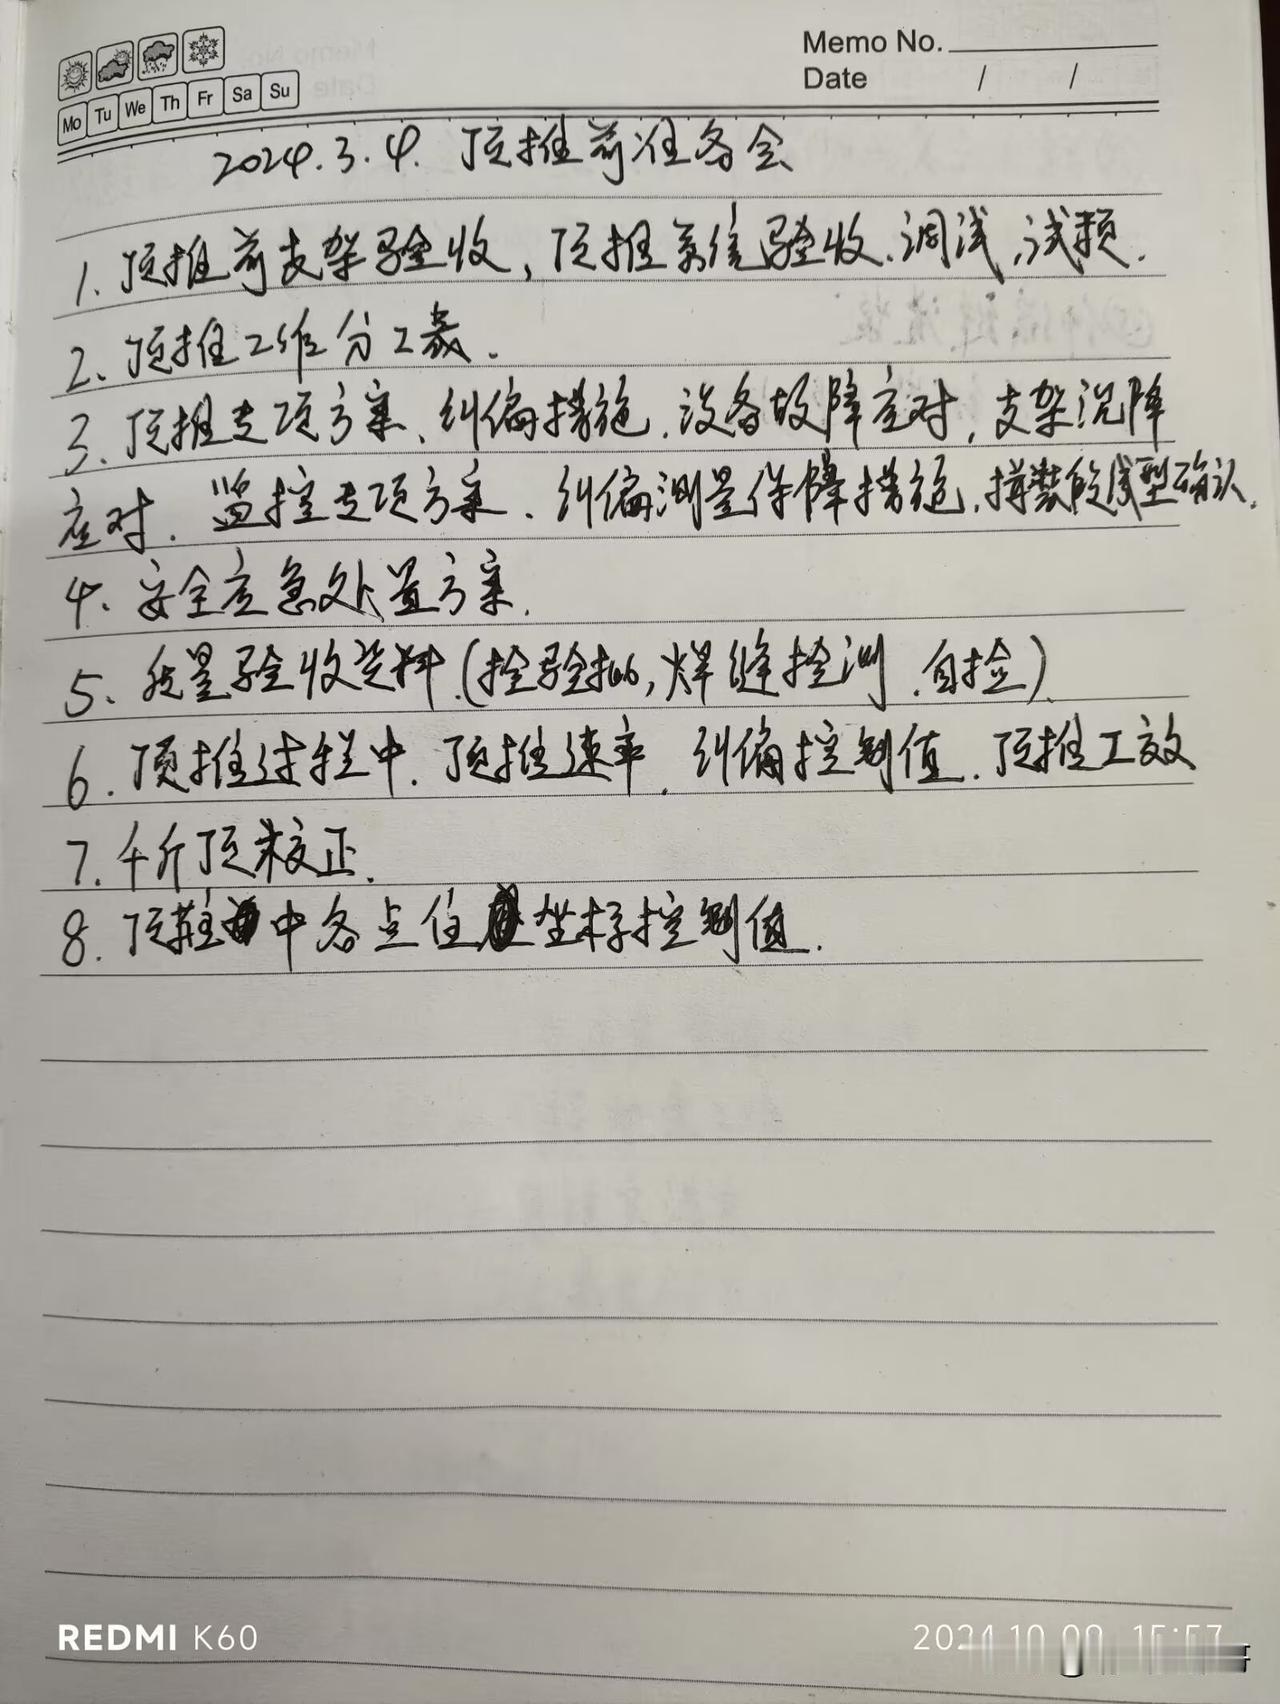 Memo No.
Date / /
Mo Tu We Th Fr Sa Su
2024.3.4. 顶推前准备会
1. 顶推前支架验收，顶推系统验收、调试，试顶.
2. 顶推工作分工表.
3. 顶推专项方案、纠偏措施.设备故障应对，支架沉降
应对. 监控专项方案. 纠偏测量保障措施.拼装段线型确认.
4. 安全应急处置方案.
5. 质量验收资料.(检验批,焊缝检测.自检)
6. 顶推过程中.顶推速率.纠偏控制值.顶推工效
7. 千斤顶校正.
8. 顶推中各点位坐标控制值.
REDMI K60
15:57